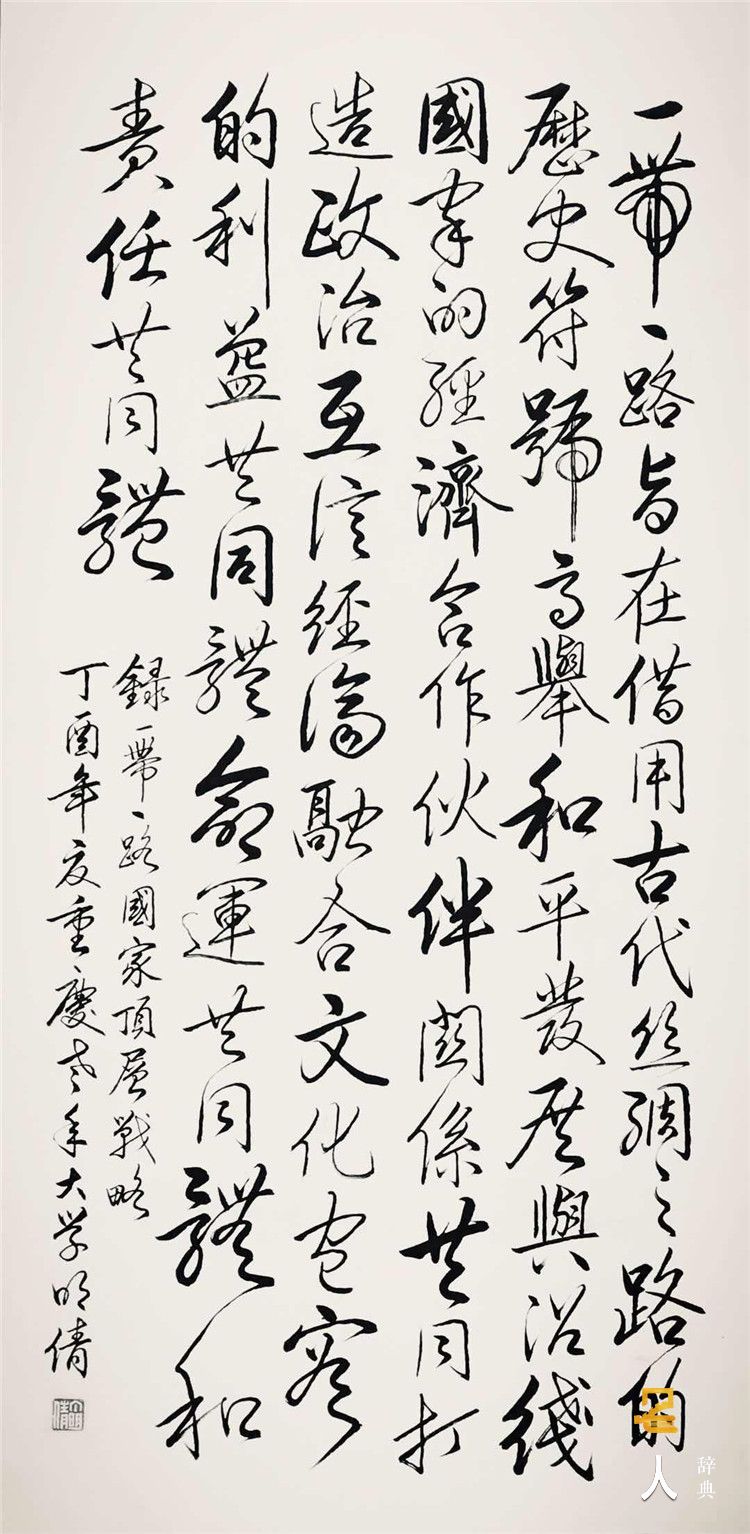 一帶一路旨在借用古代丝绸之路的
歷史符號高舉和平發展與沿綫
國家的經濟合作伙伴関係共同打
造政治互信經濟融合文化包容
的利益共同體命運共同體和
責任共同體
録一帶一路國家頂層戰略
丁酉年夏重慶老年大学明倩
名人
辞典